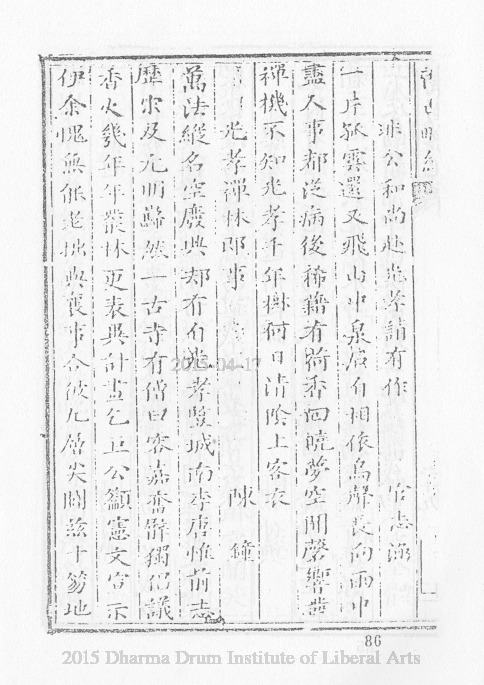 非公和尚赴光孝請有作
一片孤雲還又飛山中泉石自相依鳥聲長向雨中
盡人事都從病後稀藉有荷香回曉夢空聞磬響
禪機不知光孝千年樹何日清陰上客衣
光孝禪林即事 陳鐘
萬法縱名空廢興却有自光孝豎城南李唐惟前志
歷宋及元明巋然一古寺有僧曰客嘉奮辭獨倡議
香火幾年年叢林更表異計畫乞上公籲憲文宣示
伊余愧無能老拙與襄事合彼九層尖闢茲十笏地
2015-04-17
86
2015 Dharma Drum Institute of Liberal Arts